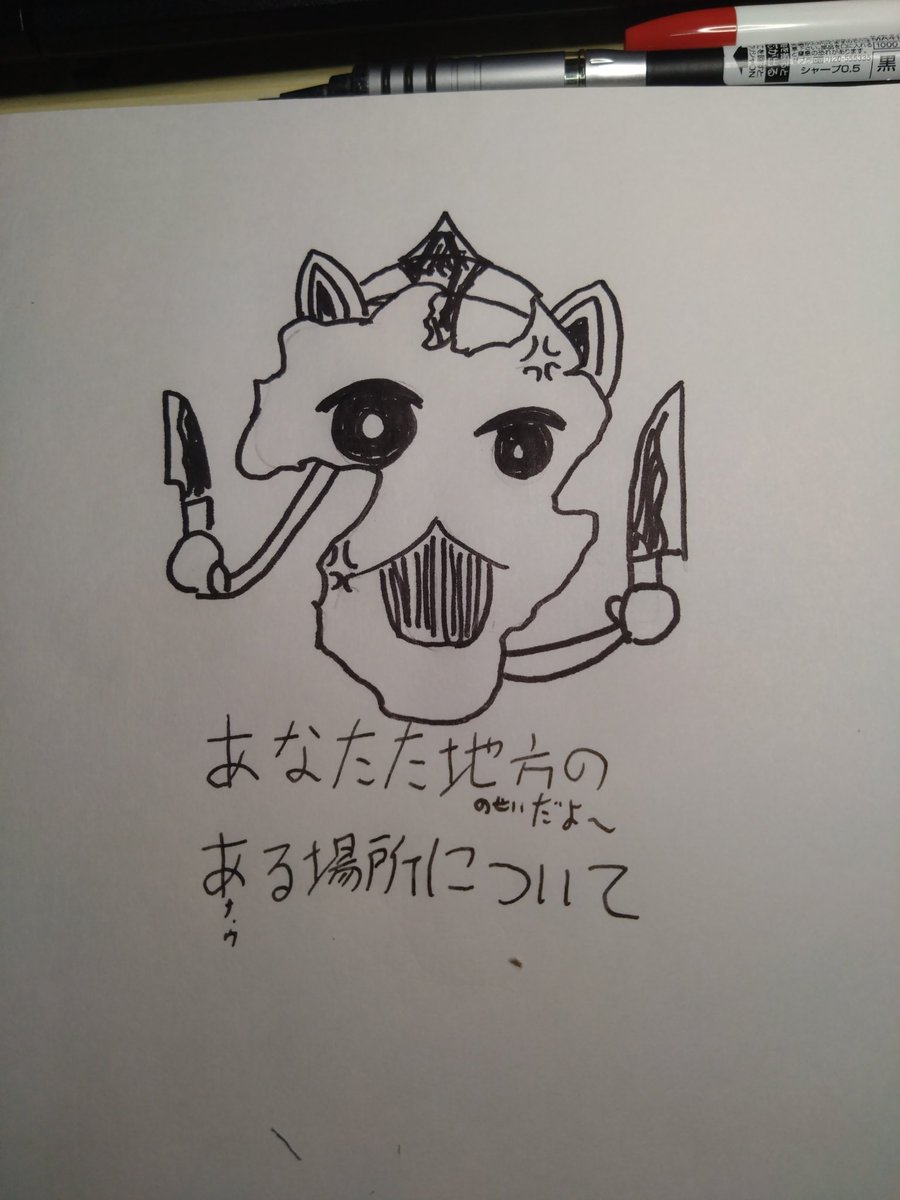 シャープ0.5
黒
1000
あなたた地方の
のせいだよ～
ある場所について
ナ・ウ